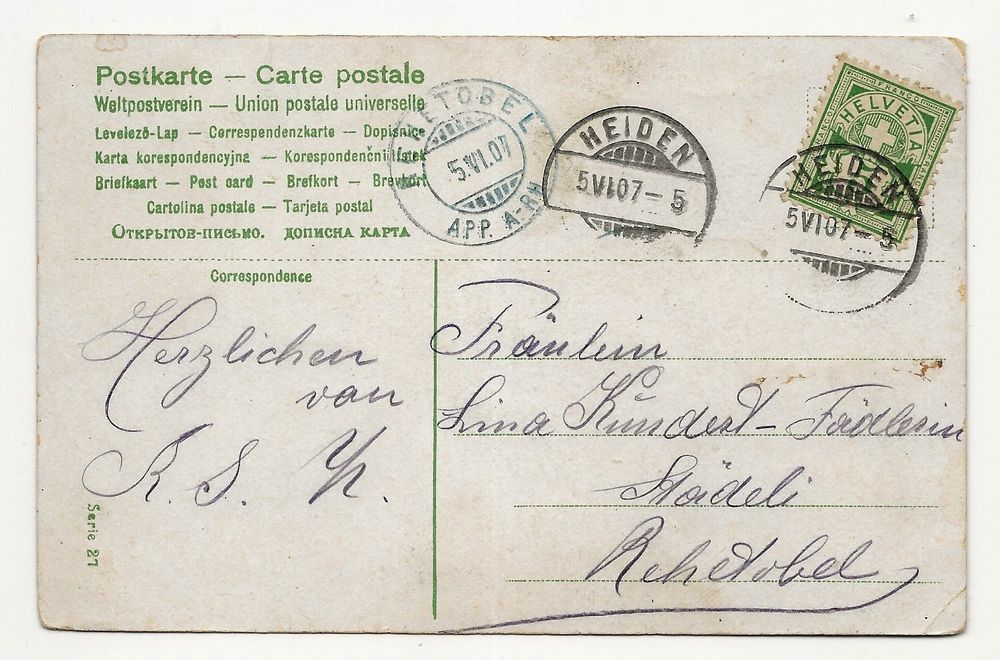 Postkarte — Carte postale
Weltpostverein — Union postale universelle
Levelező-Lap — Correspondenzkarte — Dopisnice
Karta korespondencyjna — Korespondenční lístek
Briefkaart — Post card — Brefkort — Brevkort
Cartolina postale — Tarjeta postal
Открытов-письмо. дописна карта
REHETOBEL
5.VI.07
APP. A-RH
HEIDEN
5VI07-5
FRANCO
HELVETIA
HEIDEN
5VI07-5
Correspondence
Herzlichen
von
R. S. N.
Serie 27
Fräulein
Lina Kundert-Fädlerin
Städeli
Rehetobel